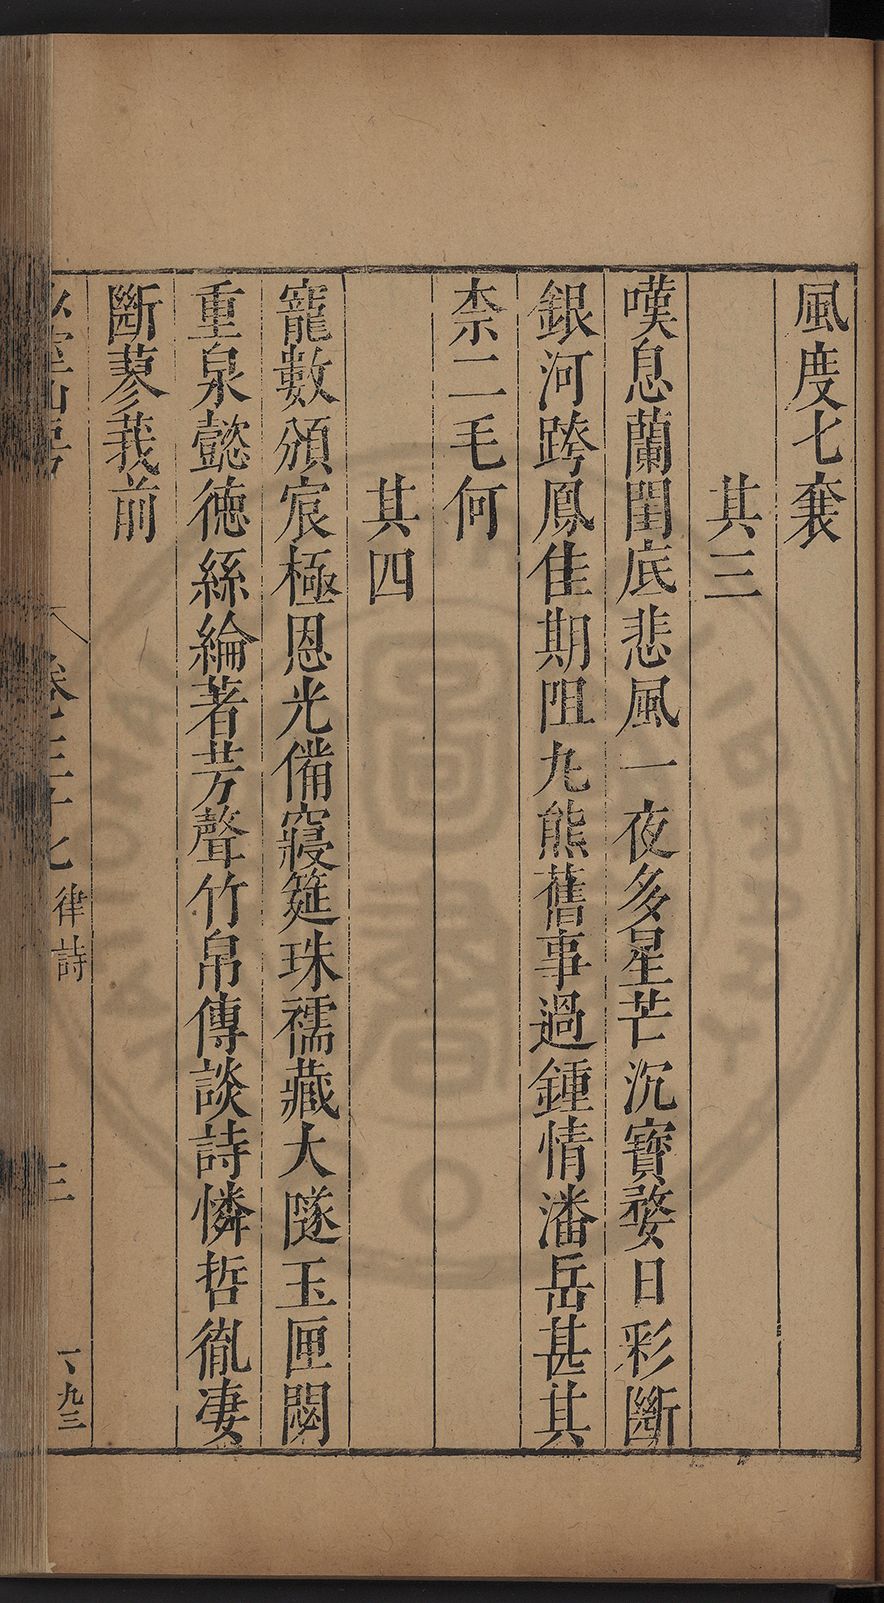 風度七襄
其三
嘆息蘭閨底悲風一夜多星芒沉寶婺日彩斷
銀河跨鳳佳期阻九熊舊事過鍾情潘岳甚其
柰二毛何
其四
寵數頒宸極恩光備寢筵珠襦藏大隧玉匣閟
重泉懿德絲綸著芳聲竹帛傳談詩憐哲胤凄
斷蓼莪前
卷三十七 律詩
三
一、九三